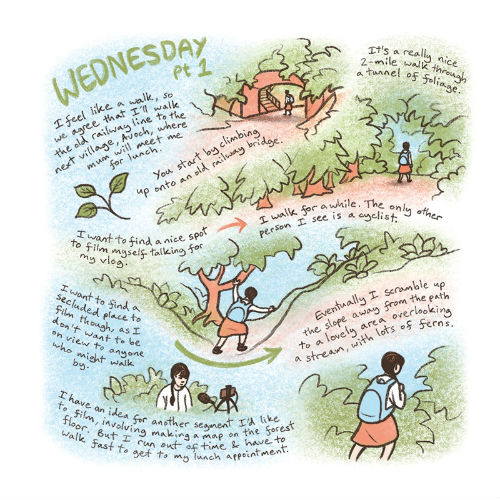 WEDNESDAY
pt 1
I feel like a walk, so
we agree that I'll walk
the old railway line to the
next village, Avoch, where
mum will meet me
for lunch.
You start by climbing
up onto an old railway bridge.
It's a really nice
2-mile walk through
a tunnel of foliage.
I walk for a while. The only other
person I see is a cyclist.
I want to find a nice spot
to film myself talking for
my vlog.
I want to find a
secluded place to
film though, as I
don't want to be
on view to anyone
who might walk
by.
Eventually I scramble up
the slope away from the path
to a lovely area overlooking
a stream, with lots of ferns.
I have an idea for another segment I'd like
to film, involving making a map on the forest
floor. But I run out of time & have to
walk fast to get to my lunch appointment.